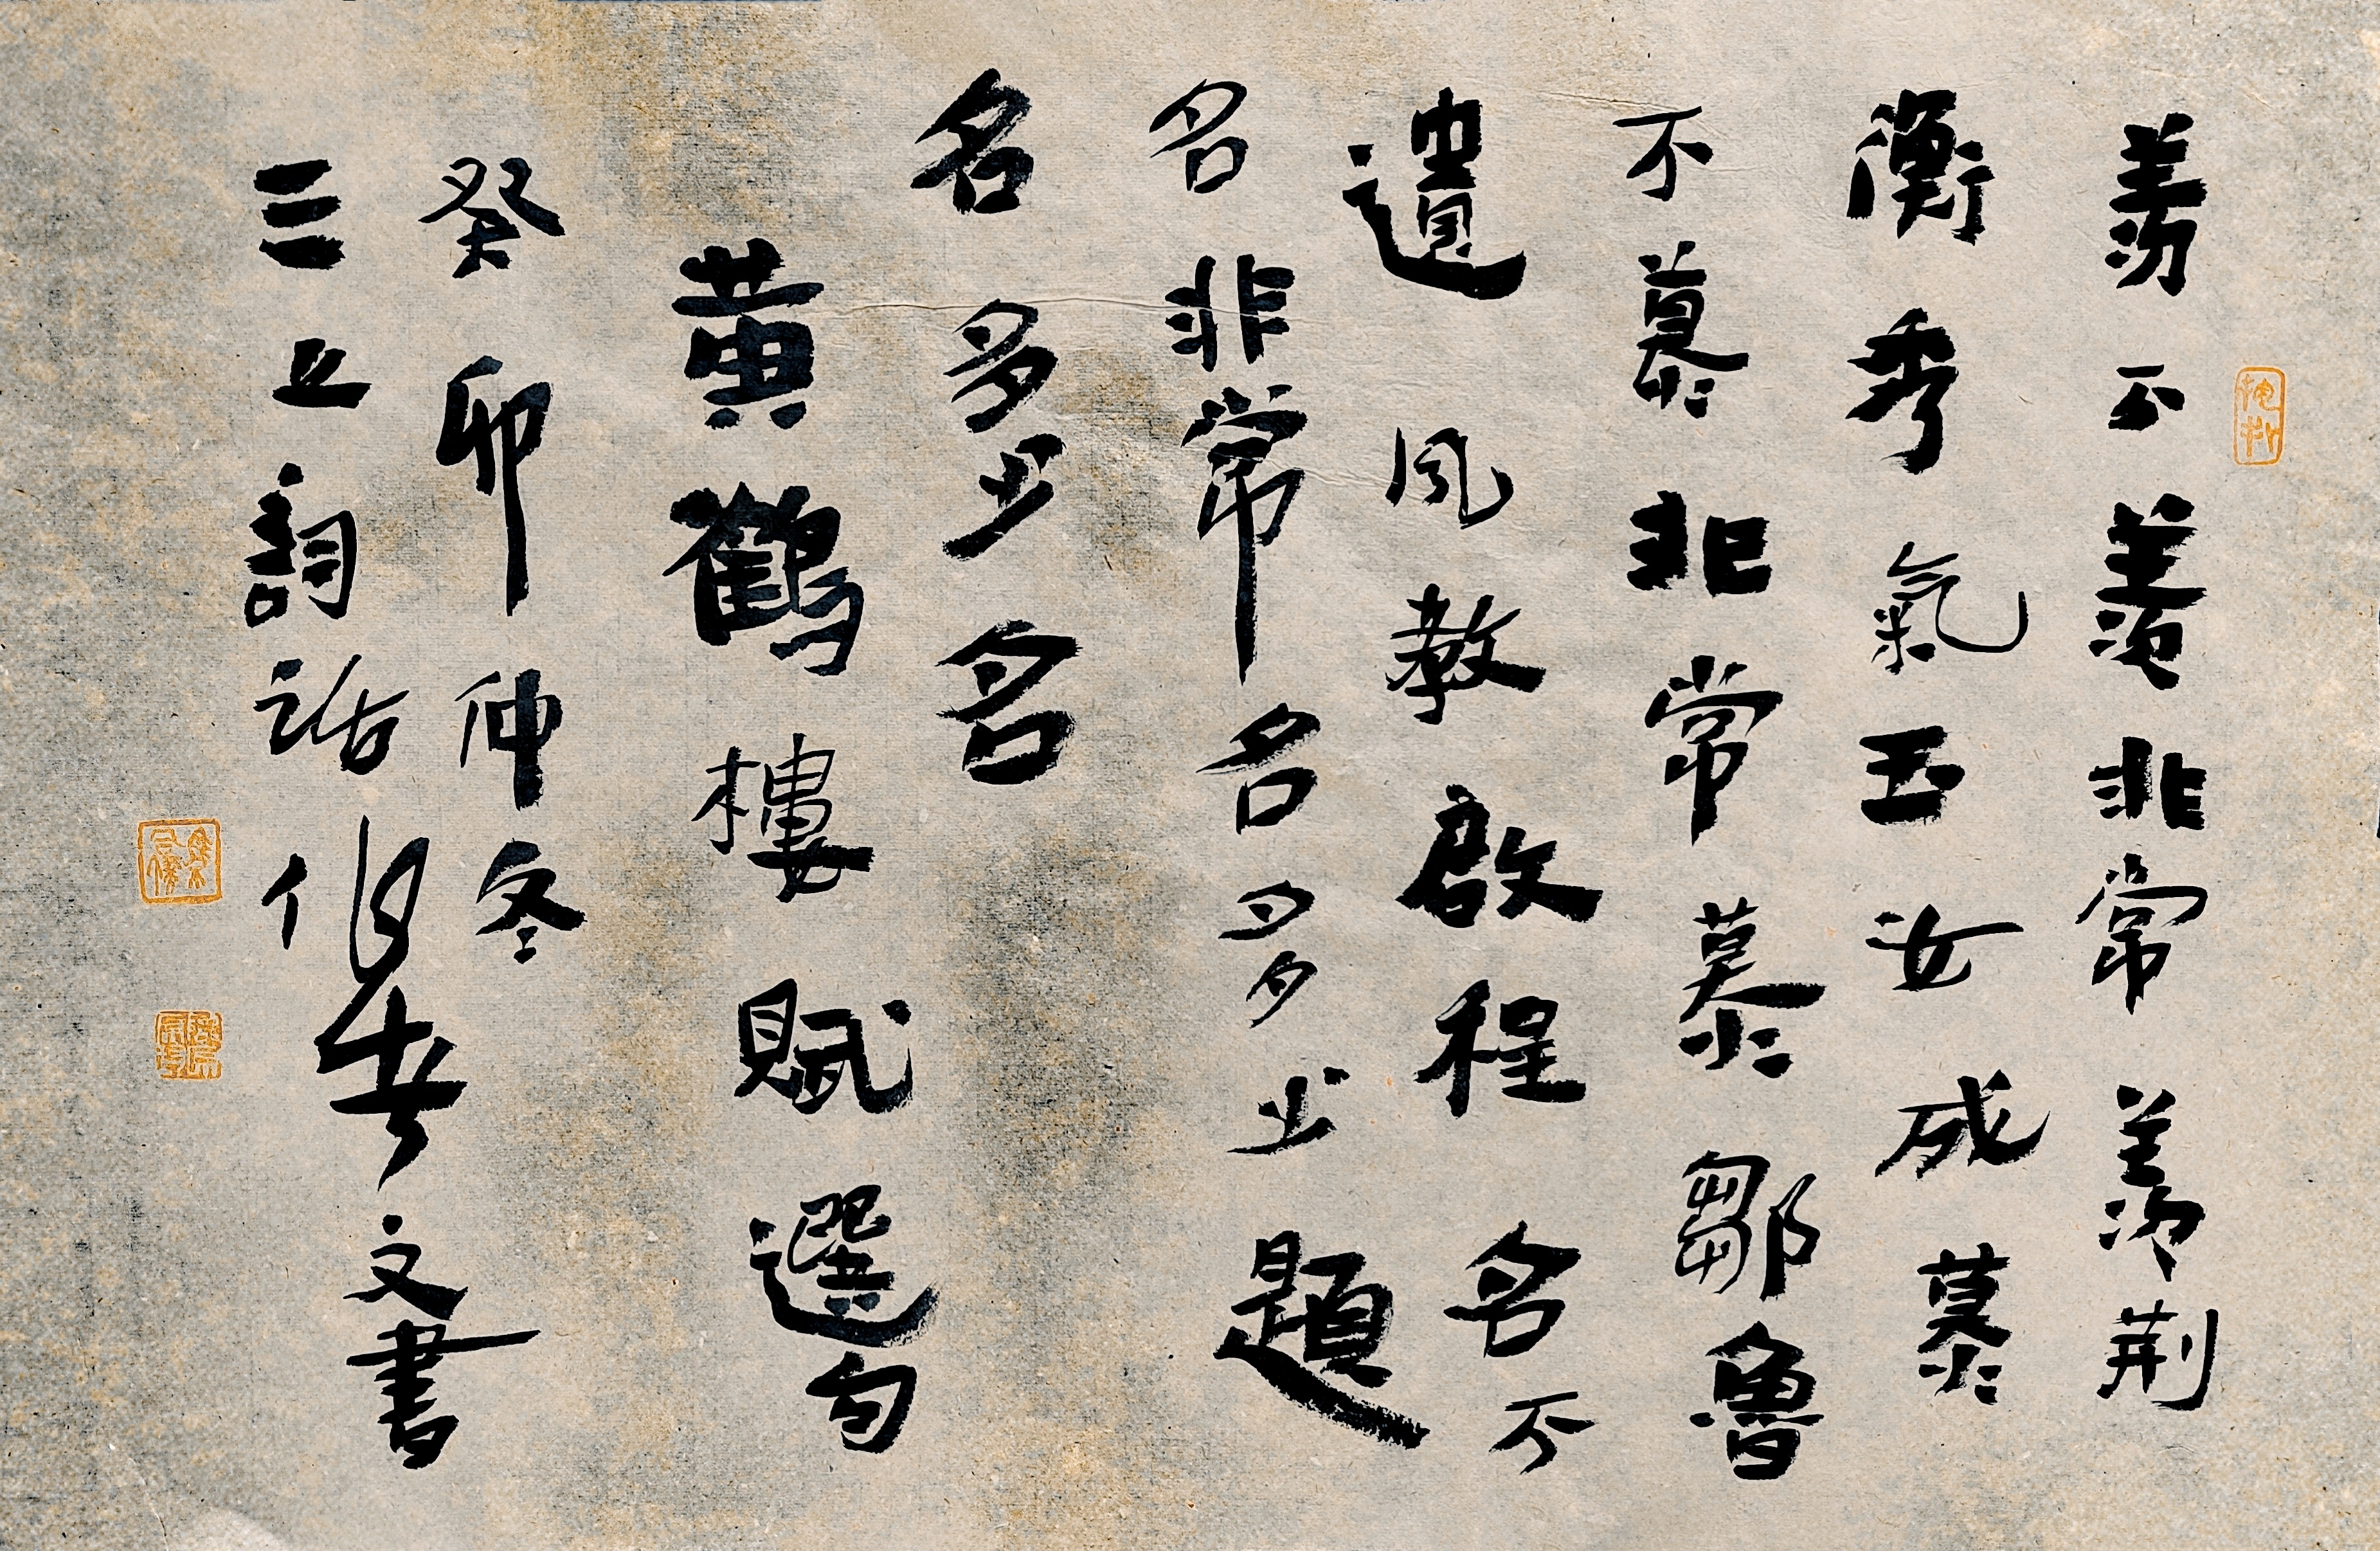 羨不羨非常羨荊
衡秀氣玉汝成慕
不慕非常慕鄒魯
遺風教啟程名不
名非常名多少題
名多少名
黃鶴樓賦選句
癸卯仲冬
三立詞話 文書